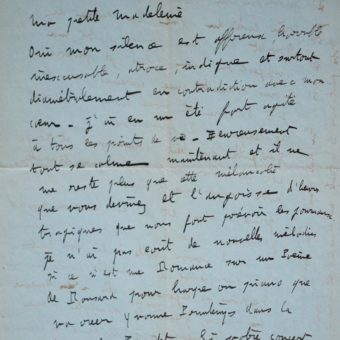 Ma petite Madeleine
Oui mon silence est affreux horrible
inexcusable, atroce, indigne et surtout
diamétralement en contradiction avec mon
cœur - J'ai eu un été fort agité
à tous les points de vue - Heureusement
tout se calme maintenant et il ne
me reste plus que cette mélancolie
que vous devinez et l'angoisse d'heures
tragiques que nous font prévoir les journaux
Je n'ai pas écrit de nouvelles mélodies
si ce n'est une Romance sur un Poème
de Ronsard pour harpe ou piano que
va créer Yvonne dans la
concert